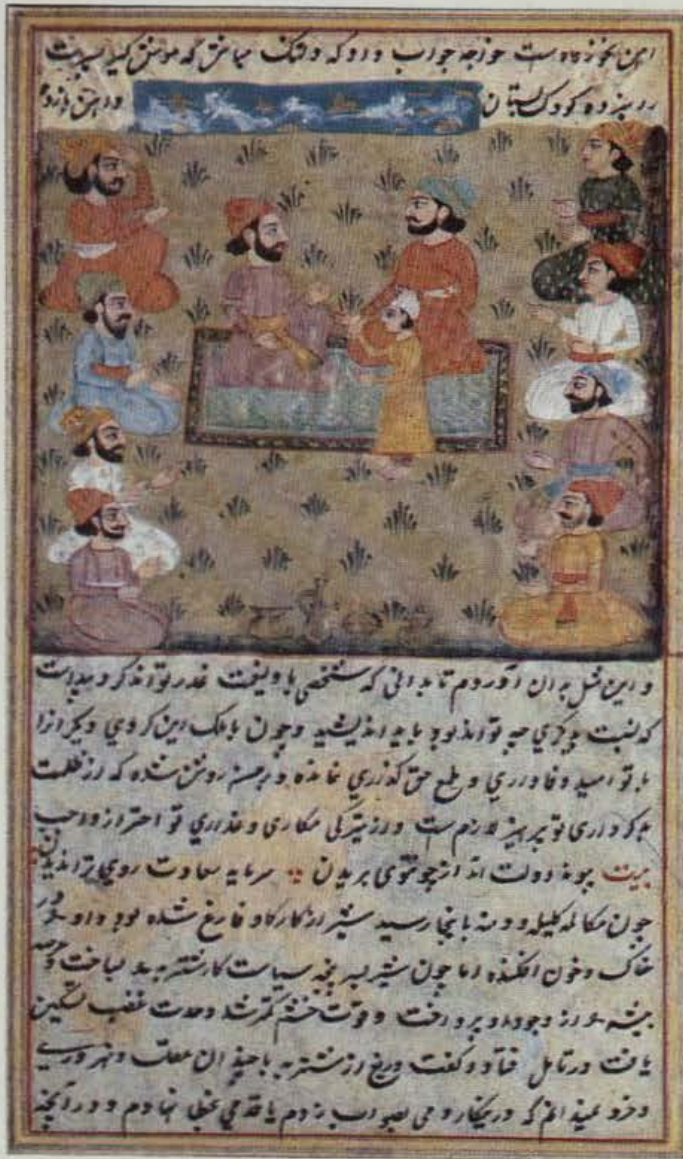 آهن نخورده است خواجه جواب داد که دلتنگ مباش که موش گیر پسرت
را نبرده کودک بستان و آهن بازده
و این مثل بدان آوردم تا بدانی که شخصی با ولینعمت غدر تواند کرد پیداست
که نسبت بدیگری چه تواند بود باید اندیشید و چون با ملک این کردی دیگرانرا
بتو امید وفاداری و طمع حق گذاری نمانده و بر من روشن شده که از ظلمت
بدکرداری تو پرهیز لازم است و از تیرگی مکاری و غداری تو احتراز واجب
بیت پیوند دولت از چو توئی بریدن سرمایه سعادت روی ترا ندیدن
چون مکالمه کلیله و دمنه باینجا رسید شیر از کار گاو فارغ شده بود و او را در
خاک و خون افکنده اما چون شیر بسر پنجه سیاست کار شنزبه بساخت و عرصه
بیشه را از وجود او پرداخت و قوت خشم کمتر شد و حدت غضب تسکین
یافت در تامل فتاد و گفت دریغ از شنزبه با چندان عقل و هنر و رای
و خرد نمیدانم که درینکار دمی بصواب زدم یا قدمی بخطا نهادم و در آنچه